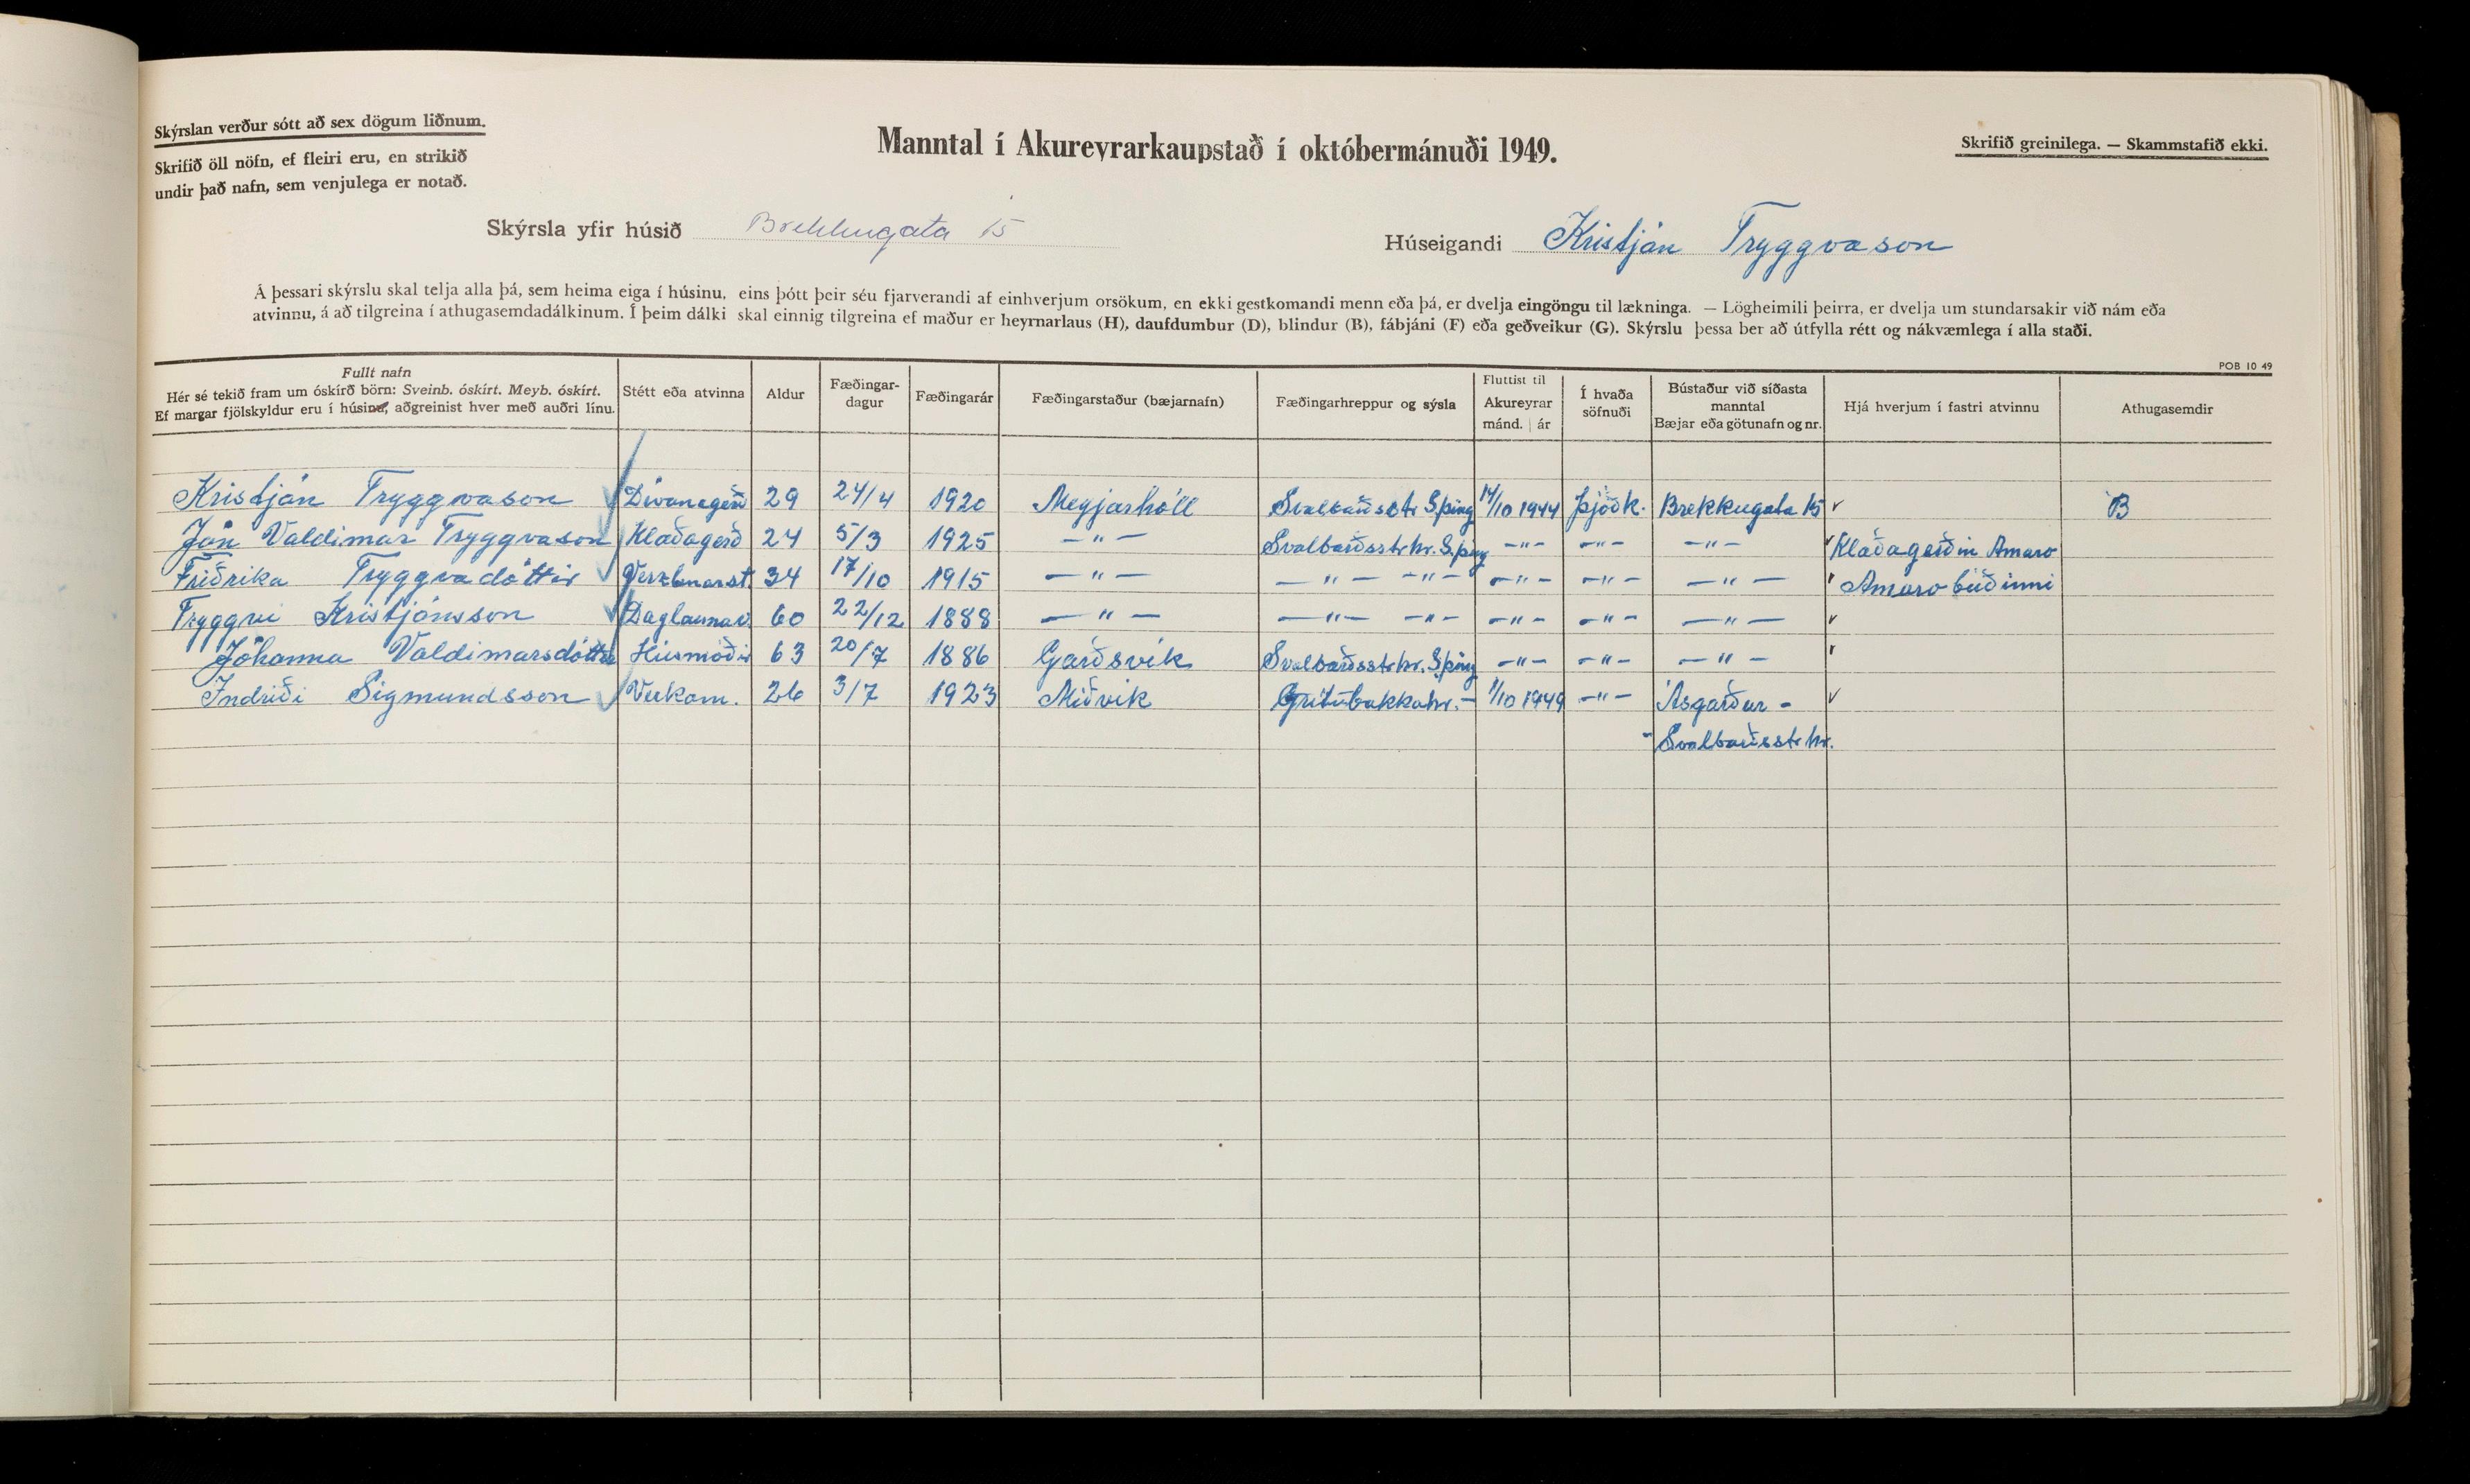 Skýrslan verður sótt að sex dögum liðnum.
Skrifið öll nöfn, ef fleiri eru, en strikið
undir það nafn, sem venjulega er notað.
Manntal í Akureyrarkaupstað í októbermánuði 1949.
Skrifið greinilega. — Skammstafið ekki.
Skýrsla yfir húsið Brekkugata 15
Húseigandi Kristján Tryggvason
Á þessari skýrslu skal telja alla þá, sem heima eiga í húsinu, eins þótt þeir séu fjarverandi af einhverjum orsökum, en ekki gestkomandi menn eða þá, er dvelja eingöngu til lækninga. — Lögheimili þeirra, er dvelja um stundarsakir við nám eða
atvinnu, á að tilgreina í athugasemdadálkinum. Í þeim dálki skal einnig tilgreina ef maður er heyrnarlaus (H), daufdumbur (D), blindur (B), fábjáni (F) eða geðveikur (G). Skýrslu þessa ber að útfylla rétt og nákvæmlega í alla staði.
POB 10 49
Fullt nafn
Hér sé tekið fram um óskírð börn: Sveinb. óskírt. Meyb. óskírt.
Ef margar fjölskyldur eru í húsinu, aðgreinist hver með auðri línu.
Stétt eða atvinna
Aldur
Fæðingar-
dagur
Fæðingarár
Fæðingarstaður (bæjarnafn)
Fæðingarhreppur og sýsla
Fluttist til
Akureyrar
mánd. | ár
Í hvaða
söfnuði
Bústaður við síðasta
manntal
Bæjar eða götunafn og nr.
Hjá hverjum í fastri atvinnu
Athugasemdir
Kristján Tryggvason Dívanagerð 29 24/4 1920 Meyjarhóll Svalbarðsstr. S.þing 14/10 1944 Þjóðk. Brekkugata 15 B
Jón Valdimar Tryggvason Klæðagerð 24 5/3 1925 —"— Svalbarðsstrhr. S.þing —"— —"— —"— Klæðagerðin Amaro
Friðrika Tryggvadóttir Verzlunarst. 34 17/10 1915 —"— —"— —"— —"— —"— —"— Amarobúðinni
Tryggvi Kristjánsson Daglaunav. 60 22/12 1888 —"— —"— —"— —"— —"— —"—
Jóhanna Valdimarsdóttir Húsmóðir 63 20/7 1886 Garðsvík Svalbarðsstrhr. S.þing —"— —"— —"—
Indriði Sigmundsson Verkam. 26 3/7 1923 Miðvík Grýtubakkahr. — 1/10 1949 —"— Ásgarður -
- Svalbarðsstrhr.